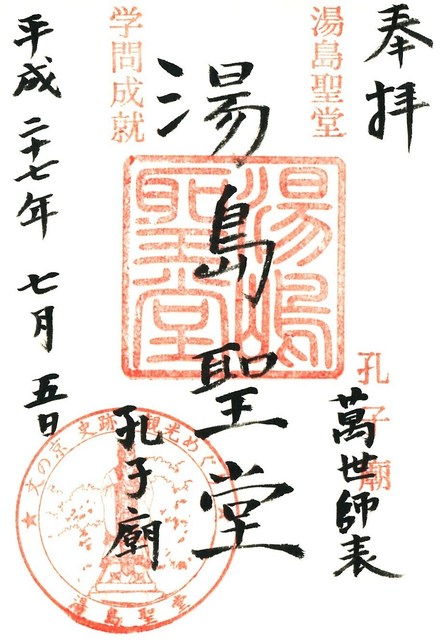 奉拝
湯島聖堂
孔子廟
萬世師表
湯島聖堂
湯嶋聖堂
学問成就
孔子廟
平成二十七年 七月 五日
文の京 史跡 観光めぐり
湯島聖堂